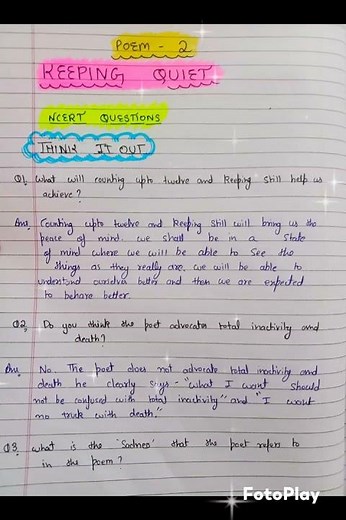 POEM - 2
KEEPING QUIET
NCERT QUESTIONS
THINK IT OUT
Q1. What will counting upto twelve and keeping still help us
achieve?
Ans. Counting upto twelve and keeping still will bring us the
peace of mind. we shall be in a state
of mind where we will be able to see the
things as they really are. we will be able to
understand ourselves better and then we are expected
to behave better.
Q2. Do you think the poet advocates total inactivity and
death?
Ans. No. The poet does not advocate total inactivity and
death he clearly says - "what I want should
not be confused with total inactivity" and "I want
no truck with death."
Q3. what is the 'Sadness' that the poet refers to
in the poem?
FotoPlay